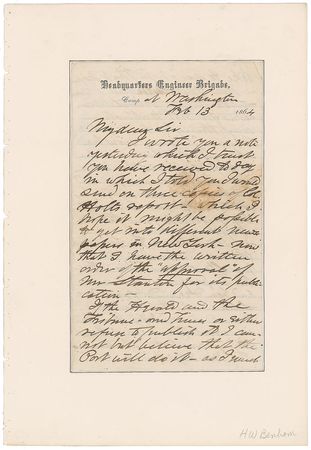 Headquarters Engineer Brigade,
Camp at Washington
Feb 13 1864
My dear Sir
I wrote you a note
yesterday which I trust
you have received to day
in which I told you I would
send on three copies of the
Holt's report - which I
hope it might be possible
to get into different news
papers in New York - now
that I have the written
order of the "approval" of
Mr Stanton for its publi
cation -
If the Herald and the
Tribune - and Times or either
refuse to publish it I can
not but believe that the
Post will do it - as I wish
H W Benham